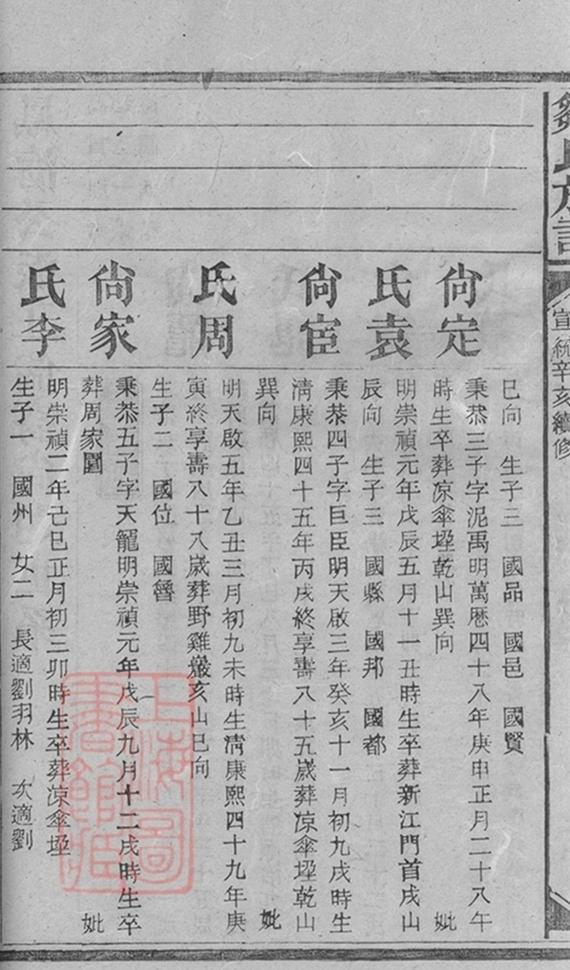 鄒氏族譜
宣統辛亥續修
巳向 生子三 國品 國邑 國賢
尙定
秉恭三子字泥禹明萬曆四十八年庚申正月二十八午
時生卒葬凉傘埕乾山巽向 妣
氏袁
明崇禎元年戊辰五月十一丑時生卒葬新江門首戌山
辰向 生子三 國縣 國邦 國都
尙宦
秉恭四子字巨臣明天啟三年癸亥十一月初九戌時生
淸康熙四十五年丙戌終享壽八十五歲葬凉傘埕乾山
巽向 妣
氏周
明天啟五年乙丑三月初九未時生淸康熙四十九年庚
寅終享壽八十八歲葬野雞巖亥山巳向
生子二 國位 國魯
尙家
秉恭五子字天寵明崇禎元年戊辰九月十二戌時生卒
葬周家園 妣
氏李
明崇禎二年己巳正月初三卯時生卒葬凉傘埕
生子一 國州 女二 長適劉羽林 次適劉
上海圖書館藏